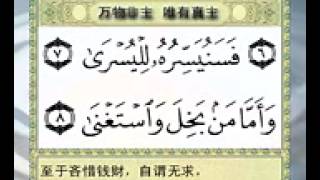 万物非主 唯有真主
﴿٦﴾ فَسَنُيَسِّرُهُۥ لِلۡيُسۡرَىٰ ﴿٧﴾
وَأَمَّا مَنۢ بَخِلَ وَٱسۡتَغۡنَىٰ ﴿٨﴾
至于吝惜钱财，自谓无求，